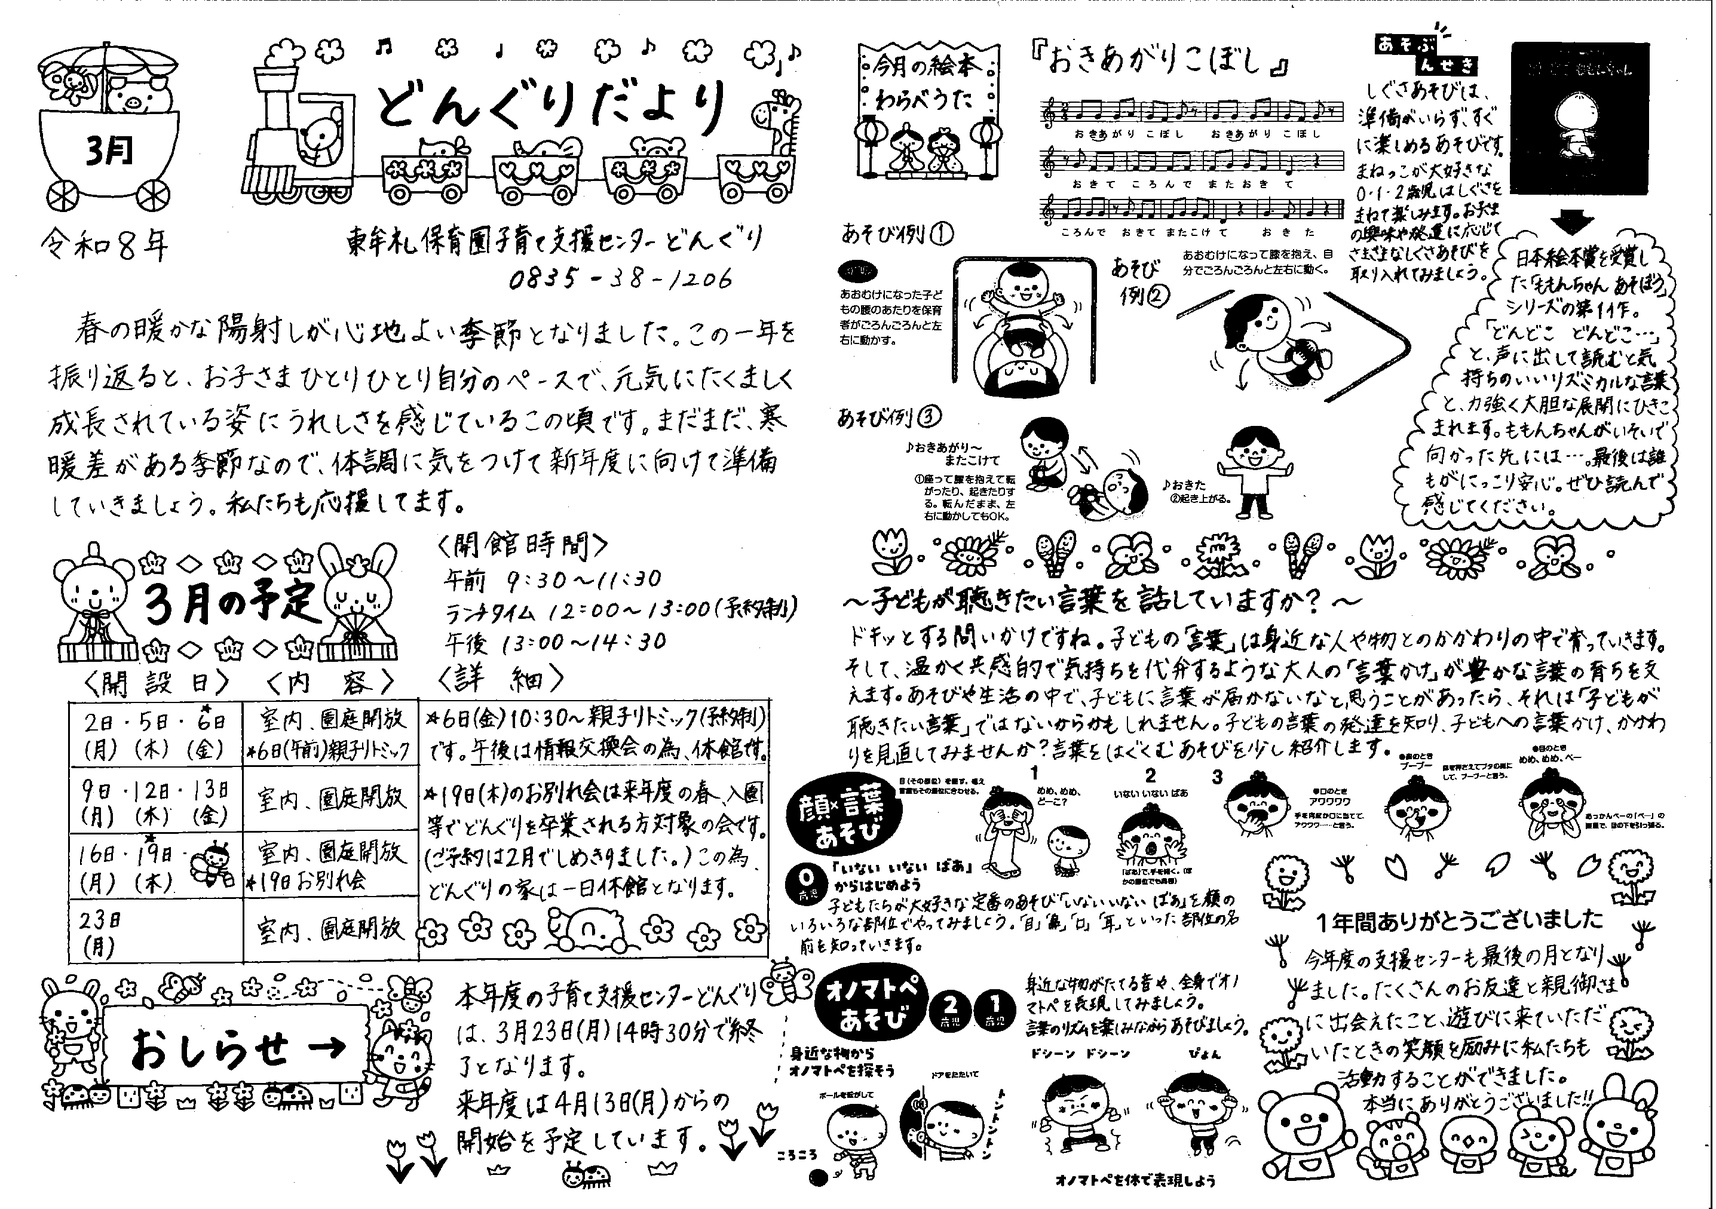 3月
どんぐりだより
令和8年
東牟礼保育園子育て支援センターどんぐり
0835-38-1206
春の暖かな陽射しが心地よい季節となりました。この一年を
振り返ると、お子さまひとりひとり自分のペースで、元気にたくましく
成長されている姿にうれしさを感じているこの頃です。まだまだ、寒
暖差がある季節なので、体調に気をつけて新年度に向けて準備
していきましょう。私たちも応援してます。
3月の予定
〈開館時間〉
午前 9:30〜11:30
ランチタイム 12:00〜13:00(予約制)
午後 13:00〜14:30
〈開設日〉 〈内容〉 〈詳細〉
2日・5日・*6日
(月) (木) (金)
室内、園庭開放
*6日(午前)親子リトミック
*6日(金)10:30〜親子リトミック(予約制)
です。午後は情報交換会の為、休館です。
9日・12日・13日
(月) (木) (金)
室内、園庭開放
*19日(木)のお別れ会は来年度の春、入園
等でどんぐりを卒業される方対象の会です。
(ご予約は2月でしめきりました。)この為、
どんぐりの家は一日休館となります。
16日・*19日・
(月) (木)
室内、園庭開放
*19日お別れ会
23日
(月)
室内、園庭開放
おしらせ →
本年度の子育て支援センターどんぐり
は、3月23日(月)14時30分で終
了となります。
来年度は4月13日(月)からの
開始を予定しています。
今月の絵本
わらべうた
『おきあがりこぼし』
おきあがり こぼし おきあがり こぼし
おきて ころんで またおきて
ころんで おきて またこけて おきた
あそび例①
あおむけになった子ど
もの腰のあたりを保育
者がごろんごろんと左
右に動かす。
あそび
例②
あおむけになって膝を抱え、自
分でごろんごろんと左右に動く。
あそび例③
♪おきあがり〜
またこけて
①座って膝を抱えて転
がったり、起きたりす
る。転んだまま、左
右に動かしてもOK。
♪おきた
②起き上がる。
あそぶ
んせき
しぐさあそびは、
準備がいらず、すぐ
に楽しめるあそびです。
まねっこが大好きな
0・1・2歳児はしぐさを
まねて楽しみます。お子さま
の興味や発達に応じて
さまざまなしぐさあそびを
取り入れてみましょう。
日本絵本賞を受賞し
た「ももんちゃん あそぼう」
シリーズの第11作。
「どんどこ どんどこ…」
と、声に出して読むと気
持ちのいいリズミカルな言葉
と、力強く大胆な展開にひきこ
まれます。ももんちゃんがいそいで
向かった先には…。最後は誰
もがにっこり安心。ぜひ読んで
感じてください。
〜子どもが聴きたい言葉を話していますか?〜
ドキッとする問いかけですね。子どもの「言葉」は身近な人や物とのかかわりの中で育っていきます。
そして、温かく共感的で気持ちを代弁するような大人の「言葉かけ」が豊かな言葉の育ちを支
えます。あそびや生活の中で、子どもに言葉が届かないなと思うことがあったら、それは「子どもが
聴きたい言葉」ではないからかもしれません。子どもの言葉の発達を知り、子どもへの言葉かけ、かかわ
りを見直してみませんか?言葉をはぐくむあそびを少し紹介します。
顔×言葉
あそび
目(その部位)を隠す。唱え
言葉もその部位に合わせる。
1
めめ、めめ、
どーこ?
2
いない いない ばあ
「ばあ」で、手を開く。(ほ
かの部位でも同様)
3
●口のとき
アワワワワ
手を何度か口に当てて、
アワワワ……と言う。
●鼻のとき
ブーブー
鼻を押さえてブタの鼻に
して、ブーブーと言う。
●目のとき
めめ、めめ、べー
あっかんべーの「べー」の
動きで、目の下を引っ張る。
0歳児
「いない いない ばあ」
からはじめよう
子どもたちが大好きな定番のあそび「いないいないばあ」を顔の
いろいろな部位でやってみましょう。「目」「鼻」「口」「耳」といった部位の名
前を知っていきます。
オノマトペ
あそび
2歳児 1歳児
身近な物がたてる音や、全身でオノ
マトペを表現してみましょう。
言葉のリズムを楽しみながらあそびましょう。
身近な物から
オノマトペを探そう
ボールを転がして
ころころ
ドアをたたいて
トントントン
ドシーン ドシーン
ぴょん
オノマトペを体で表現しよう
1年間ありがとうございました
今年度の支援センターも最後の月となり
ました。たくさんのお友達と親御さま
に出会えたこと、遊びに来ていただ
いたときの笑顔を励みに私たちも
活動することができました。
本当にありがとうございました!!